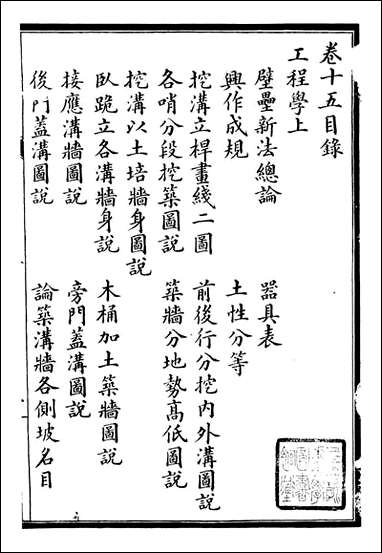 卷十五目錄
工程學上
壁壘新法總論
器具表
興作成規
土性分等
挖溝立桿畫綫二圖
前後行分挖內外溝圖說
各哨分段挖築圖說
築牆分地勢高低圖說
挖溝以土培牆身圖說
臥跪立各溝牆身說
木桶加土築牆圖說
接應溝牆圖說
旁門蓋溝圖說
後門蓋溝圖說
論築溝牆各側坡名目